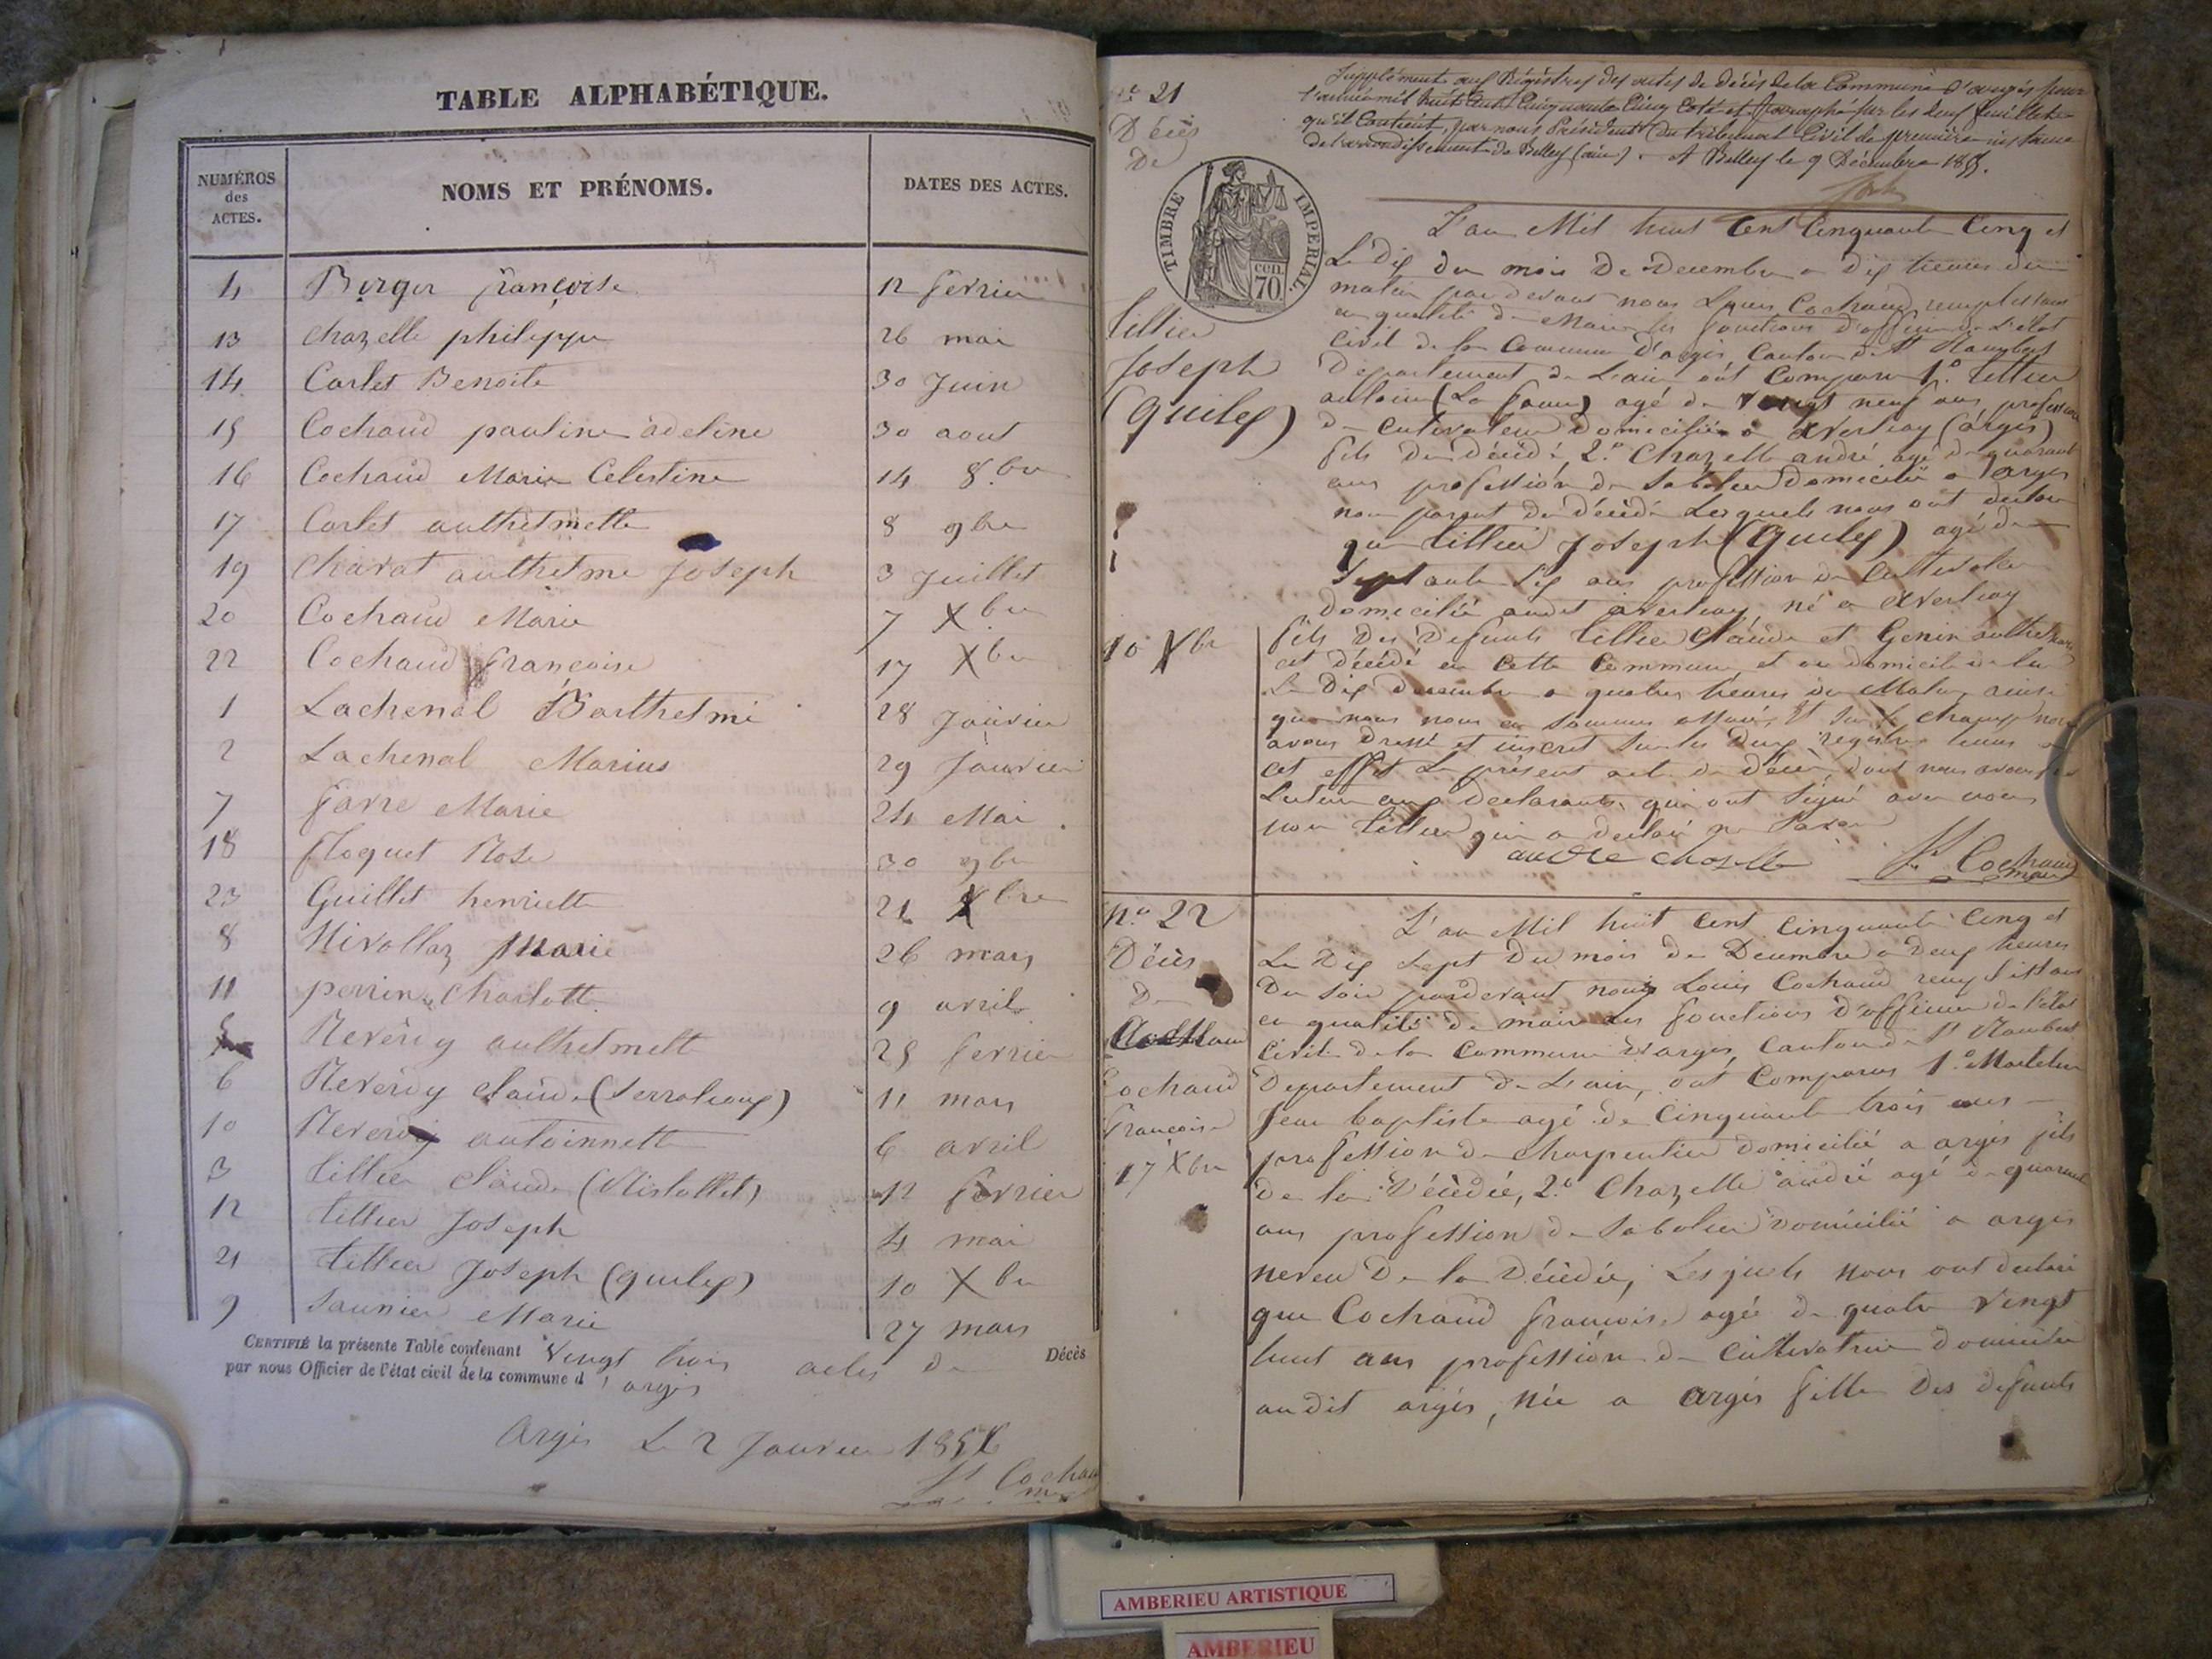 TABLE ALPHABÉTIQUE.
NUMÉROS des ACTES.
NOMS ET PRÉNOMS.
DATES DES ACTES.
4 Berger françoise 12 fevrier
13 chazelle philippe 26 mai
14 Carlet Benoite 30 Juin
15 Cochaud pauline adeline 30 aout
16 Cochaud Marie Celestine 14 8.bre
17 Carlet anthelmette 8 9bre
19 Charat anthelme Joseph 3 Juillet
20 Cochaud Marie 7 Xbre
22 Cochaud françoise 17 Xbre
1 Lachenal Barthelmi 28 Janvier
2 Lachenal Marius 29 Janvier
7 favre Marie 24 Mai
18 floquet Rose 30 9bre
23 Guillet henriette 21 Xbre
8 Nivollaz Marie 26 mars
11 perrin Charlotte 9 avril
5 Reverdy anthelmette 25 fevrier
6 Reverdy Claude 11 mars
10 Reverdy antoinnette 6 avril
3 tillier Claude 12 fevrier
12 tillier Joseph 4 mai
21 tillier Joseph (quiley) 10 Xbre
9 Saunier Marie 27 mars
CERTIFIÉ la présente Table contenant vingt trois actes de Décès
par nous Officier de l'état civil de la commune d'argis
Argis Le 2 Janvier 1856
Lis Cochaud
maire
n.o 21
Décès
De
tillier
Joseph
(quiley)
10 Xbre
TIMBRE IMPERIAL.
CEN. 70
Supplément aux Régistres des actes de décès de la Commune d'argis pour
l'année mil huit cent Cinquante Cinq Coté et Paraphé sur les deux feuillets
qu'il Contient, par nous Président du tribunal Civil de première instance
de l'arrondissement de Belley (ain). A Belley le 9 Décembre 1855.
L'an Mil huit Cent Cinquante Cinq et
Le Dix du mois De Decembre a dix heures du
matin par devant nous Louis Cochaud, remplissant
en qualité de Maire les fonctions d'officier de l'état
Civil de la Commune d'argis, Canton de St Rambert
Departement de L'ain ont Comparu 1.o tillier
antoine agé de vingt neuf ans profession
de Cultivateur domicilié a averliay (argis)
fils du décédé, 2.o Chazelle andré agé de quarante
ans profession de Sabotier Domicilié a argis
non parent du décédé Lesquels nous ont déclaré
que tillier Joseph (quiley) agé de
Septante Six ans profession de Cultivateur
domicilié audit averliay, né a averliay
fils des defunts tillier Claude et Genin anthelmette
est décédé en Cette Commune et au domicile de lui
Le Dix decembre a quatre heures du Matin, ainsi
que nous nous en sommes assuré, Et sur le champ nous
avons Dressé et inscrit sur les deux registres tenus a
cet effet Le présent acte de décès, dont nous avons fait
lecture aux Declarants, qui ont Signé avec nous
non tillier qui a declaré ne savoir
andre chazelle Lis Cochaud
maire
n.o 22
Décès
De
Cochaud
françoise
17 Xbre
L'an Mil huit cent Cinquante Cinq et
Le Dix Sept Du mois de Decembre a Deux heures
Du soir pardevant nous Louis Cochaud remplissant
en qualité de maire les fonctions d'officier de l'état
Civil de la Commune d'argis, Canton de St Rambert
Departement de L'ain, ont Comparus 1.o Martelin
Jean baptiste agé de Cinquante trois ans
profession de charpentier domicilié a argis fils
de la Décédée, 2.o Chazelle andré agé de quarante
ans profession de Sabotier domicilié a argis
neveu De la Décédée, Lesquels nous ont declaré
que Cochaud françoise agée de quatre vingt
huit ans profession de Cultivatrice domiciliée
audit argis, née a argis fille des defunts
AMBERIEU ARTISTIQUE
AMBERIEU